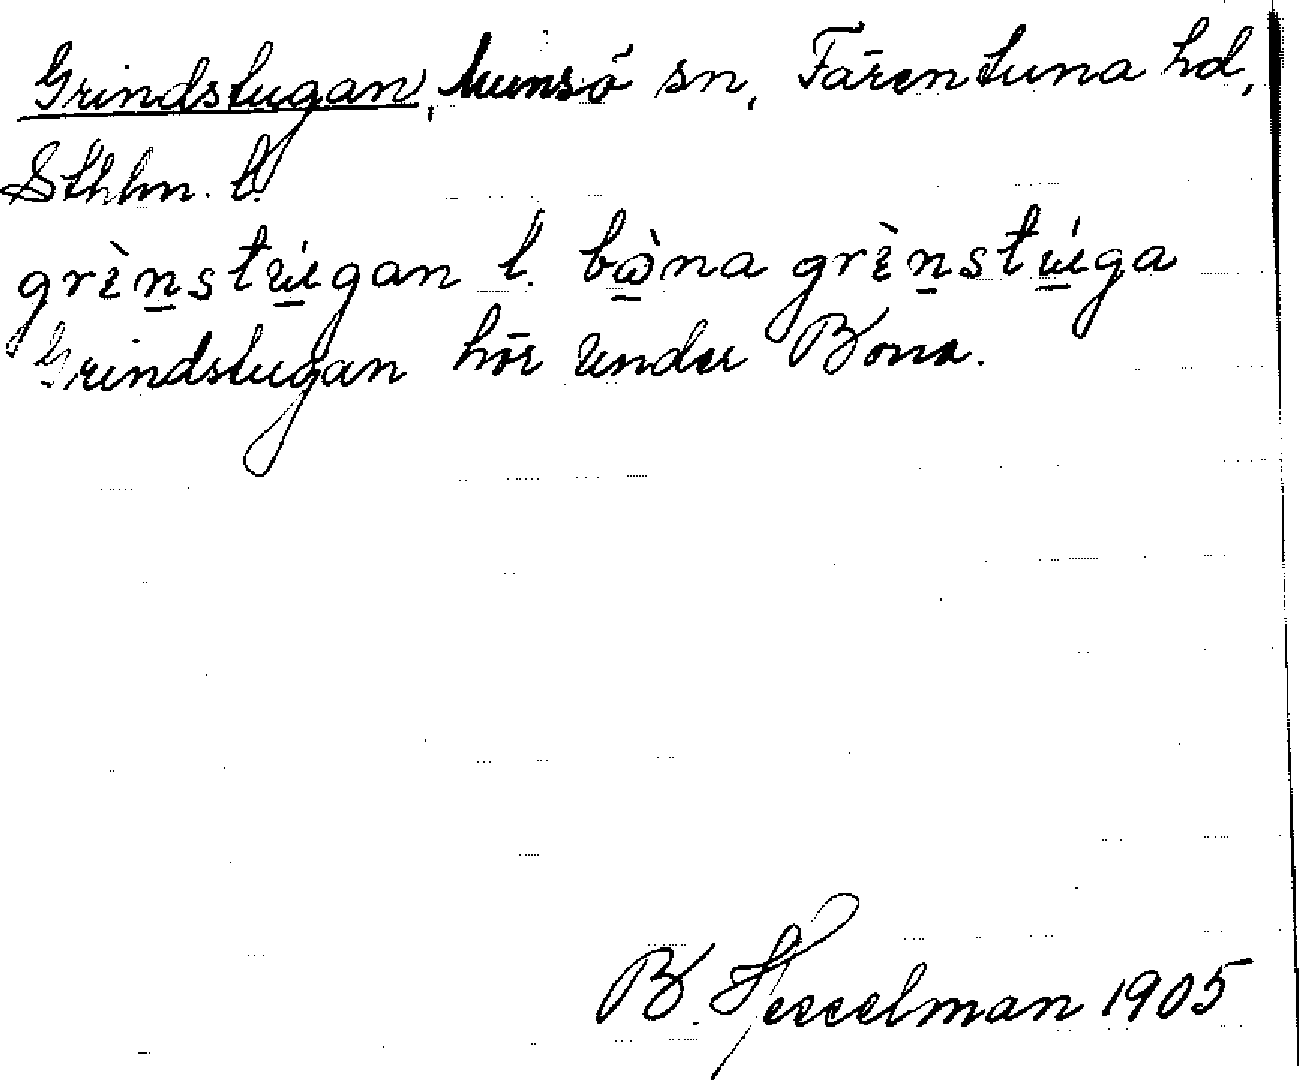 Grindstugan, Munsö sn, Färentuna hd,
Sthlm. l.
grɛ̀n̲stɯ̲́gan l. bὼ̲na grɛ̀n̲stɯ̲́ga
Grindstugan hör under Bona.
B. Hesselman 1905